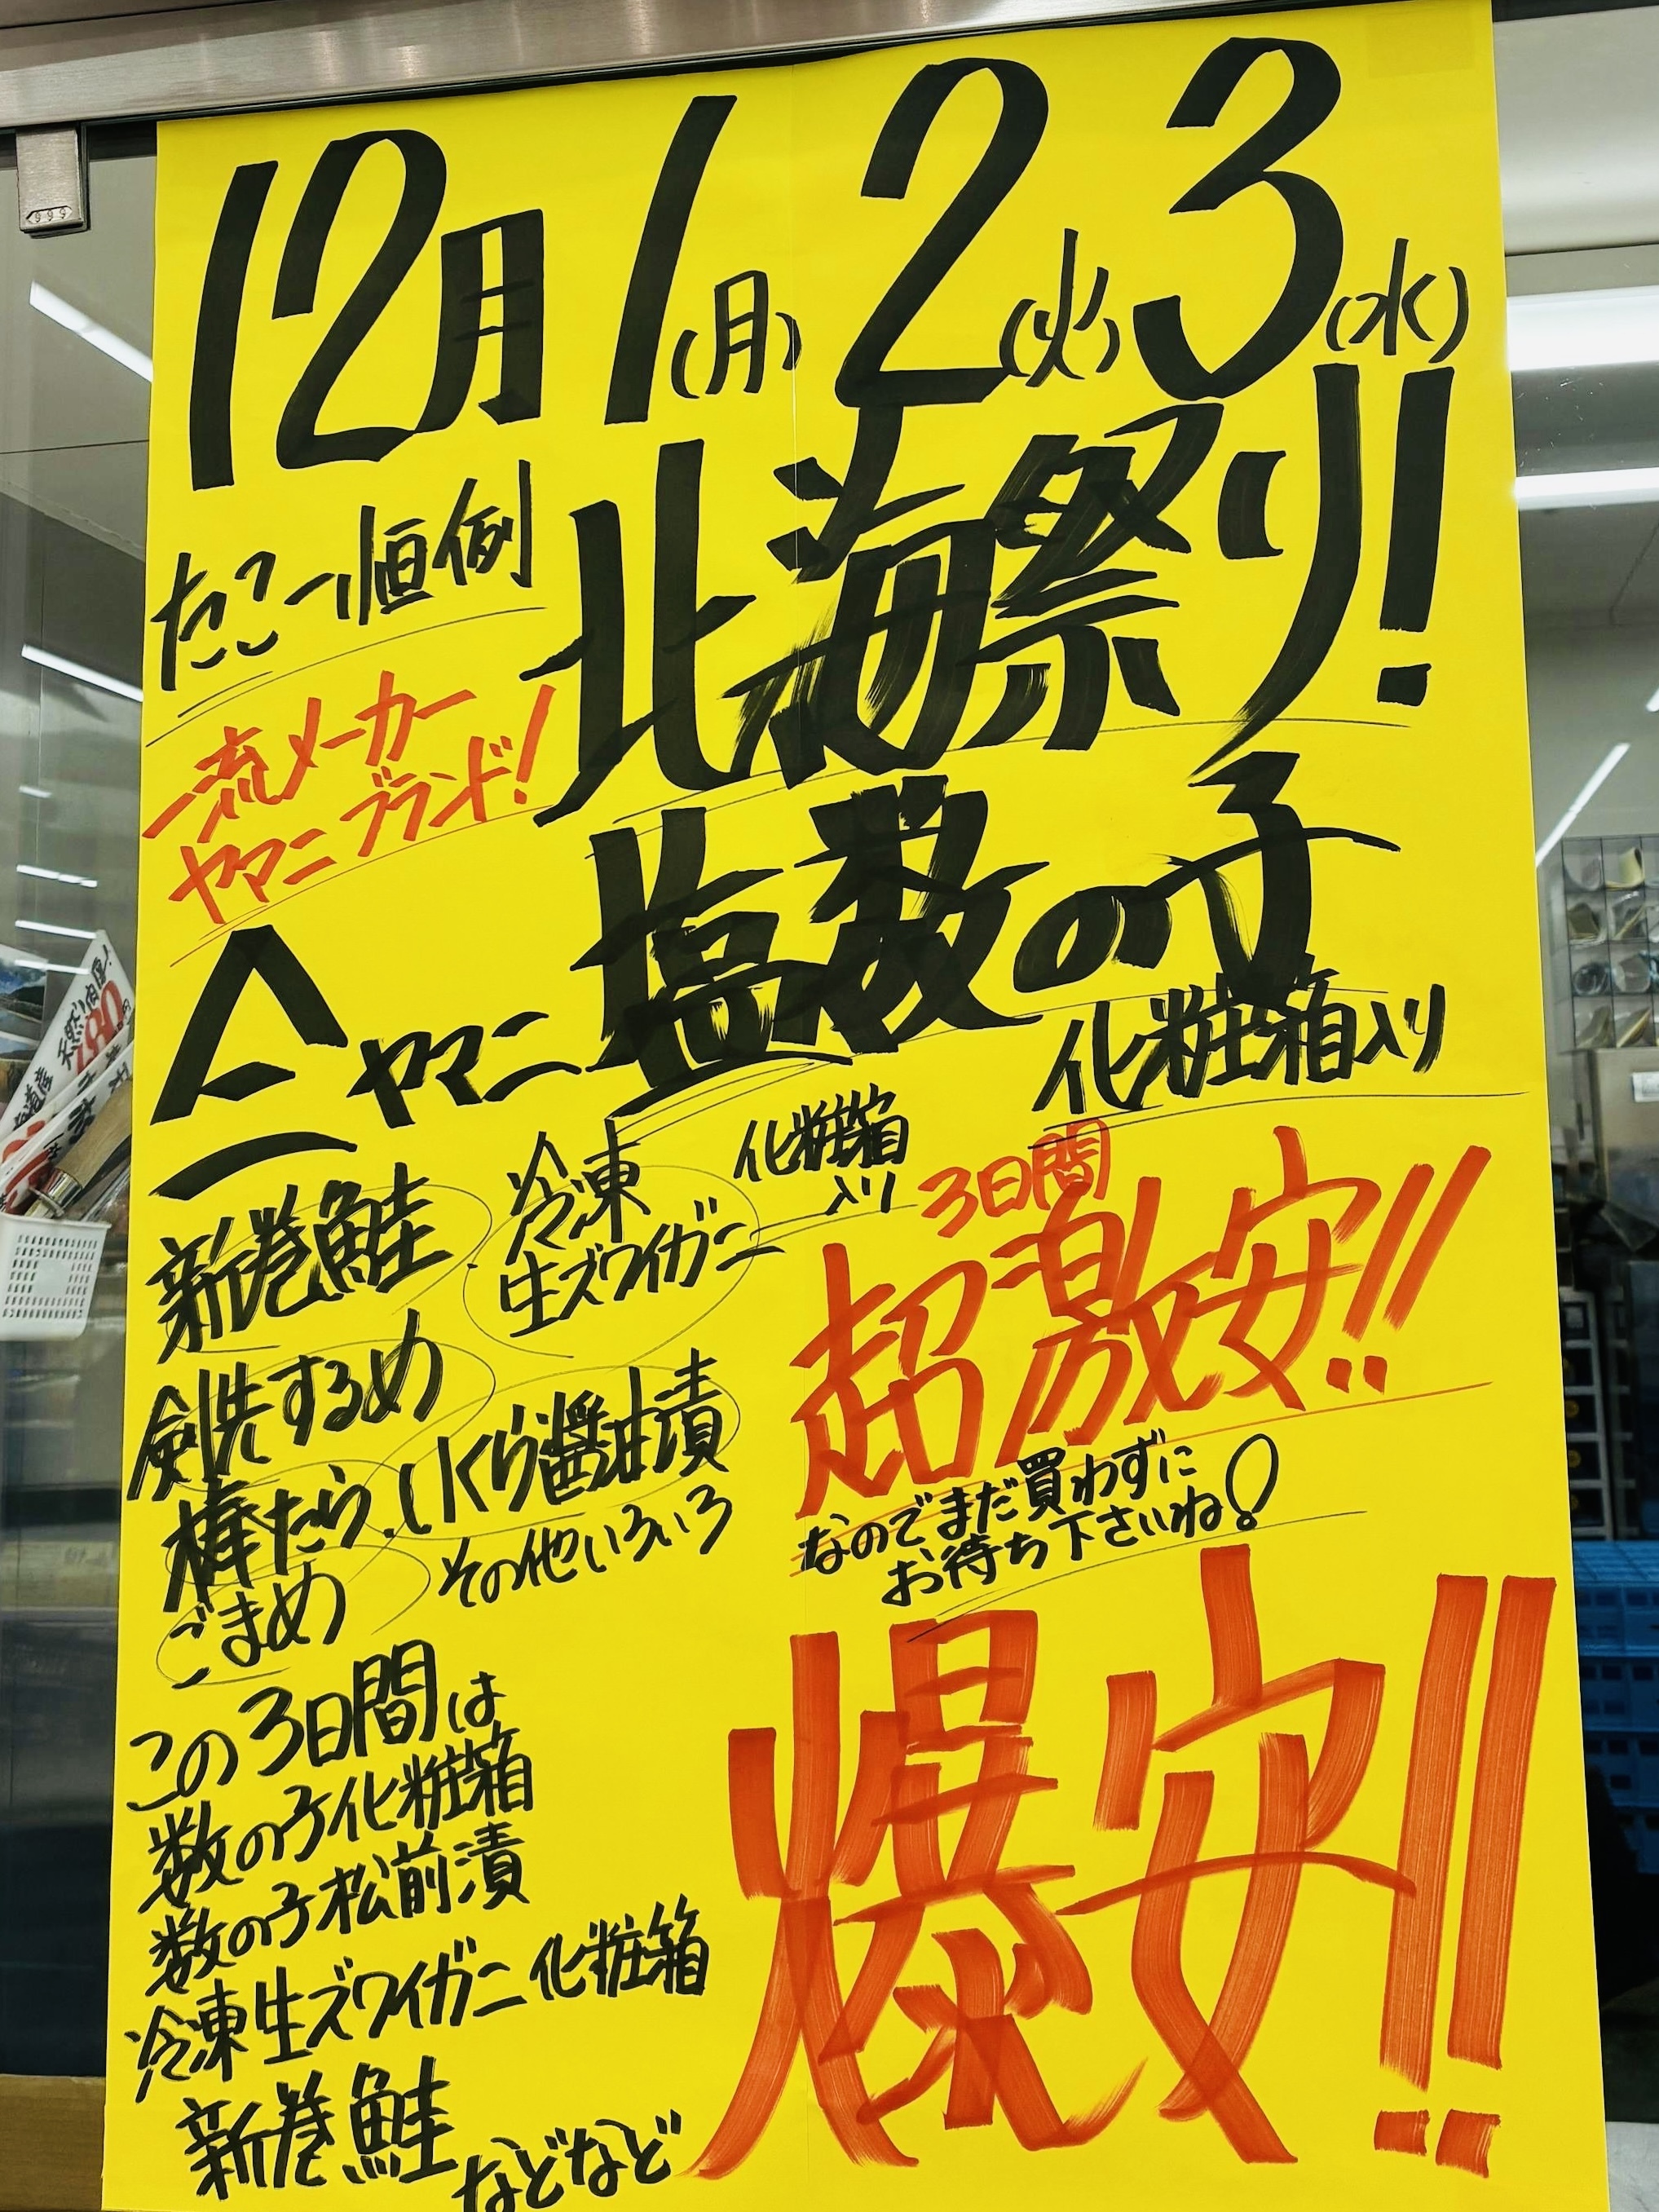 12月1(月)2(火)3(水)
たこ一恒例
北海祭り!!
一流メーカー
ヤマニブランド!
ヤマニ
塩数の子
化粧箱入り
新巻鮭
冷凍
生ズワイガニ
化粧箱
入り
3日間
超激安!!
剣先するめ
棒たら
いくら醤油漬
ごまめ
その他いろいろ
なのでまだ買わずに
お待ち下さいね!
爆安!!
この3日間は
数の子化粧箱
数の子松前漬
冷凍生ズワイガニ化粧箱
新巻鮭
などなど